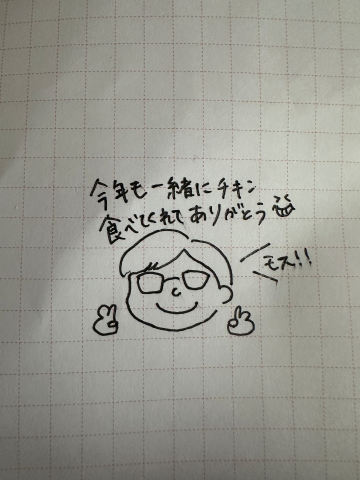 今年も一緒にチキン
食べてくれてありがとう
モス!!